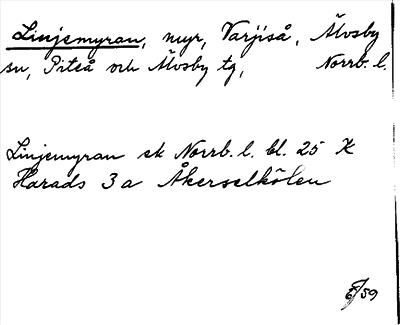 Linjemyran, myr, Varjiså, Älvsby
sn, Piteå och Älvsby tg, Norrb. l.
Linjemyran ek Norrb. l. bl. 25 K
Harads 3 a Åkerselkölen
/59